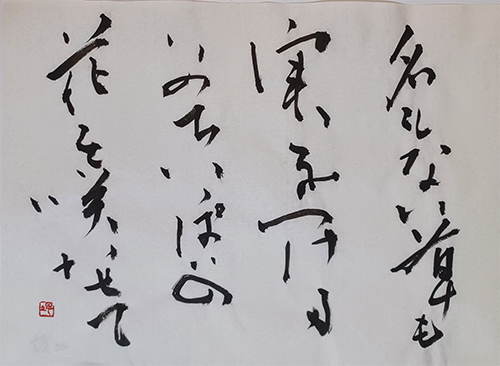 名もない草も
実をつける
いのちいっぱいの
花を咲かせて